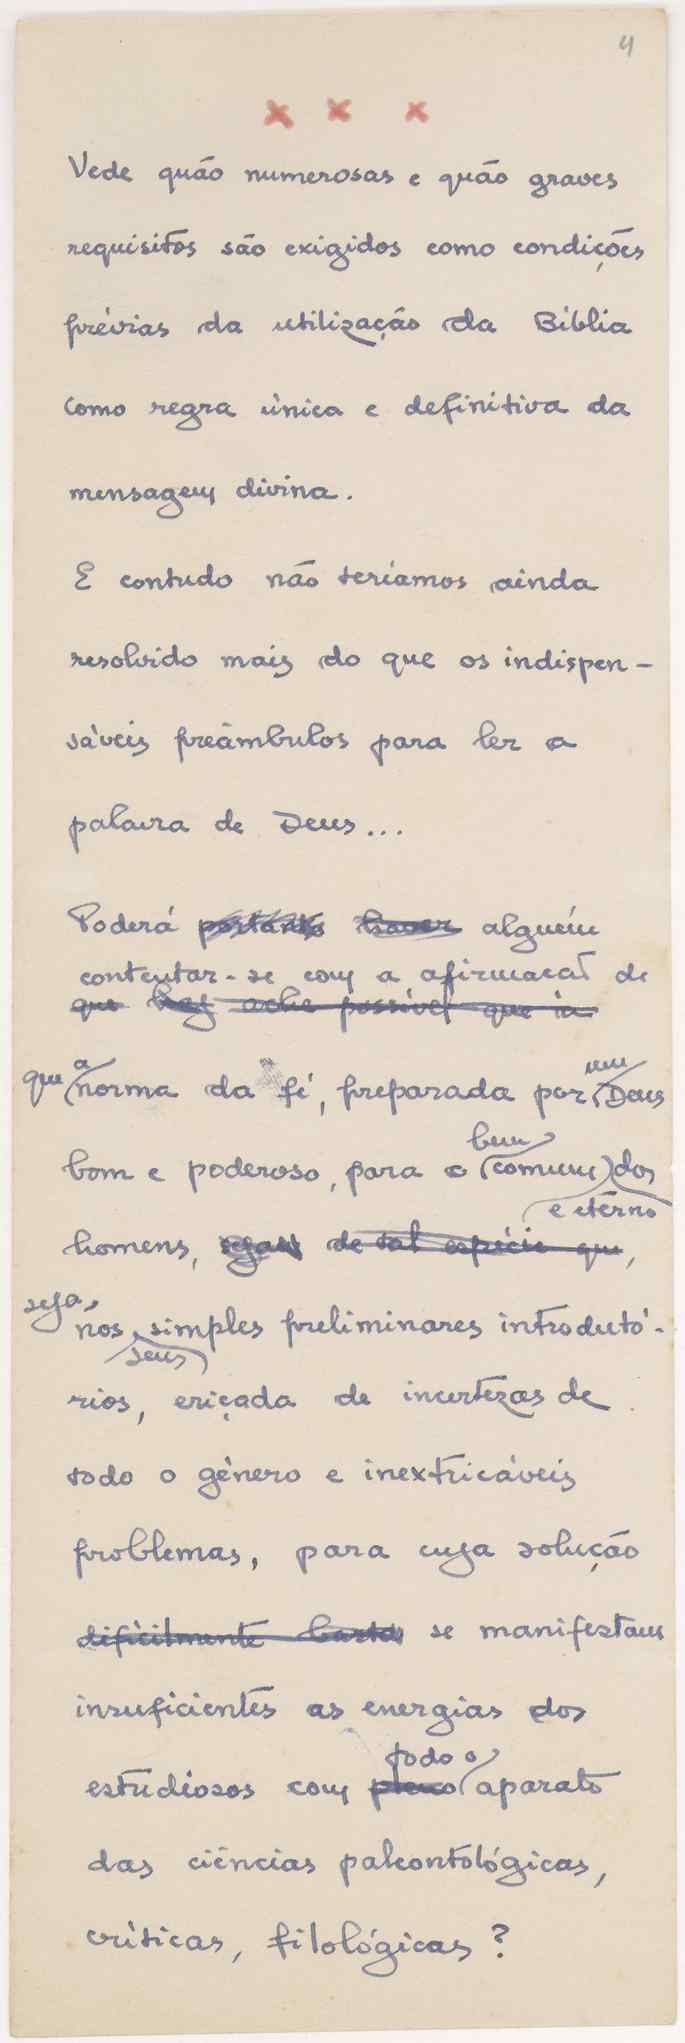 4
x x x
Vede quão numerosas e quão graves
requisitos são exigidos como condições
prévias da utilização da Bíblia
como regra única e definitiva da
mensagem divina.
E contudo não teríamos ainda
resolvido mais do que os indispen-
sáveis preâmbulos para ler a
palavra de Deus...
Poderá portanto haver alguém
contentar-se com a afirmacaõ de
que haj ache possível que a
que a norma da fé, preparada por um Deus
bom e poderoso, para o bem comum dos
e eterno
homens, de tal espécie que,
seja, nos seus simples preliminares introdutó-
rios, eriçada de incertezas de
todo o género e inextricáveis
problemas, para cuja solução
dificilmente basta se manifestam
insuficientes as energias dos
todo o
estudiosos com pleno aparato
das ciências paleontológicas,
críticas, filológicas?